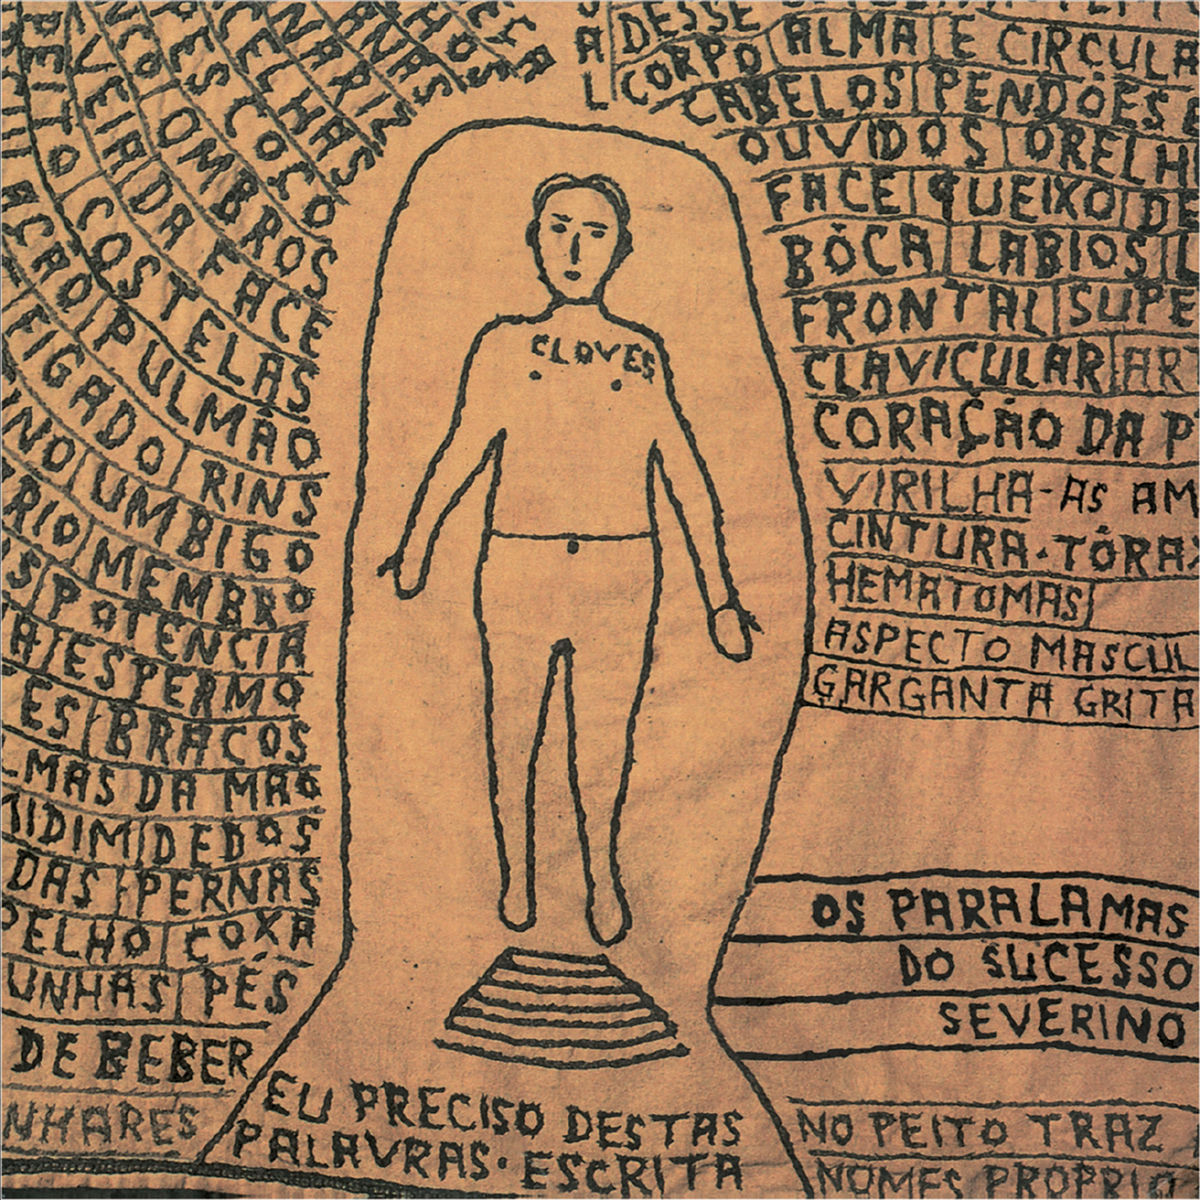 NARIZ
ELHAS
PESCOÇO
OMBROS
DA FACE
PEITO COSTELAS
PULMÃO
FIGADO RINS
UMBIGO
MEMBRO
POTENCIA
ESPERMO
BRACOS
DA MAO
DEDOS
DAS PERNAS
COXA
UNHAS PÉS
DE BEBER
NHARES
SAL
DESSE
CORPO ALMA E CIRCULA
CABELOS PENDÕES
OUVIDOS ORELH
FACE QUEIXO DE
BÔCA LABIOS L
FRONTAL SUPE
CLAVICULAR ART
CORAÇÃO DA P
VIRILHA-AS AM
CINTURA·TÓRAX
HEMATOMAS
ASPECTO MASCUL
GARGANTA GRITA
CLOVES
OS PARALAMAS
DO SUCESSO
SEVERINO
EU PRECISO DESTAS
PALAVRAS·ESCRITA
NO PEITO TRAZ
NOMES PROPRIO